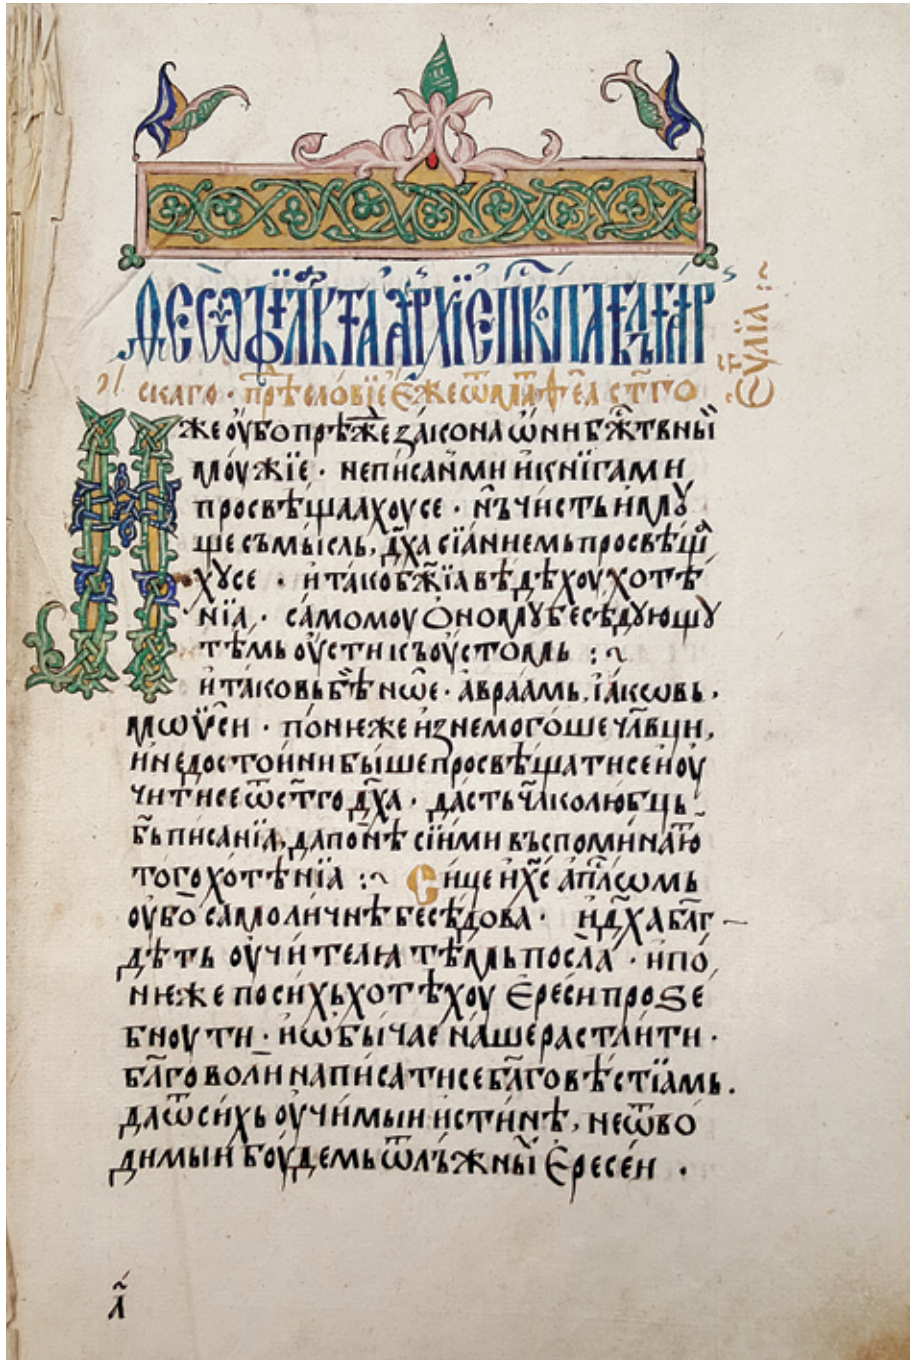 Ѳеѡфѷлакта архїепⷭ҇кпа бъльгар
скаго · прⷣѣсловїе еже ѿ маѳеа ст҃го
еѵⷢ҇лїа :~
Иже оубо прѣжⷣе закѡна ѡни бжⷭ҇твнїи
моужїе · не писанми и книгами
просвѣщаахоу се · нъ чисть имꙋ
ще съмысль, дх҃а сїанїемь просвѣщаа
хꙋ се · и тако бж҃їа вѣдѣхоу хотѣ
нїа · самомоу ономꙋ бесѣдоующꙋ
тѣмь оусти къ оустомь :~
и таковь бѣ нѡе · авраамь, їакѡвь ·
мѡѷсеи · понѥже изнемогоше чл҃вци,
и недостоини быше просвѣщати се и оу
чити се ѿ ст҃го дх҃а · дасть чл҃аколюбць
бг҃ь писанїа, да понѣ сїими въспоминаю
т того хотѣнїа :~ Сице и хс҃ апⷭ҇лѡмь
оубо самоличнѣ бесѣдова · и дх҃а блг҃
дѣть оучителꙗ тѣмь посла · и по
нѥже по сихь хотѣхоу ереси прозе
бноути · и ѡбычае наше растлити ·
бл҃говоли написати се бл҃говѣстїамь .
да ѿ сихь оучимыи истинѣ, не ѿво
димыи боудемь ѿ лъжныⷯ ересеи ·
а҃